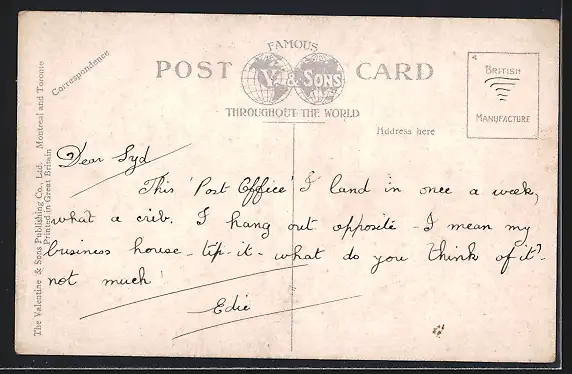 FAMOUS
POST V. & SONS CARD
THROUGHOUT THE WORLD
Correspondence
Address here
BRITISH
MANUFACTURE
The Valentine & Sons Publishing Co., Ltd. Montreal and Toronto
Printed in Great Britain
Dear Syd
This 'Post Office' I land in once a week,
what a crib. I hang out opposite - I mean my
business house - tip - it - what do you think of it? -
not much!
Edie